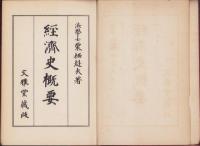 法學士 栗栖赳夫著
經濟史概要
文雅堂藏版